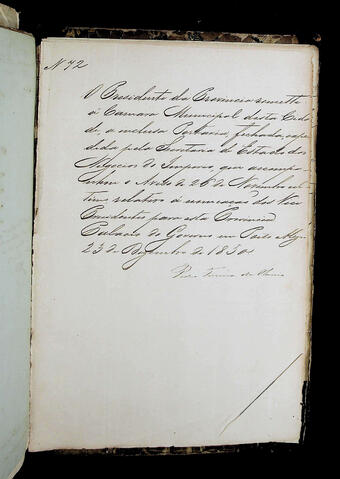 N 72
O Presidente da Provincia remette
á Camara Municipal desta Cida-
de, a inclusa Portaria, fechada, expe-
dida pela Secretaria d'Estado dos
Negocios do Imperio que acompa-
nhou o Aviso de 26 de Novembro ul-
timo relativo á nomeacao dos Vice
Presidentes para esta Provincia
Palacio do Governo em Porto Alegre
23 de Dezembro de 1850